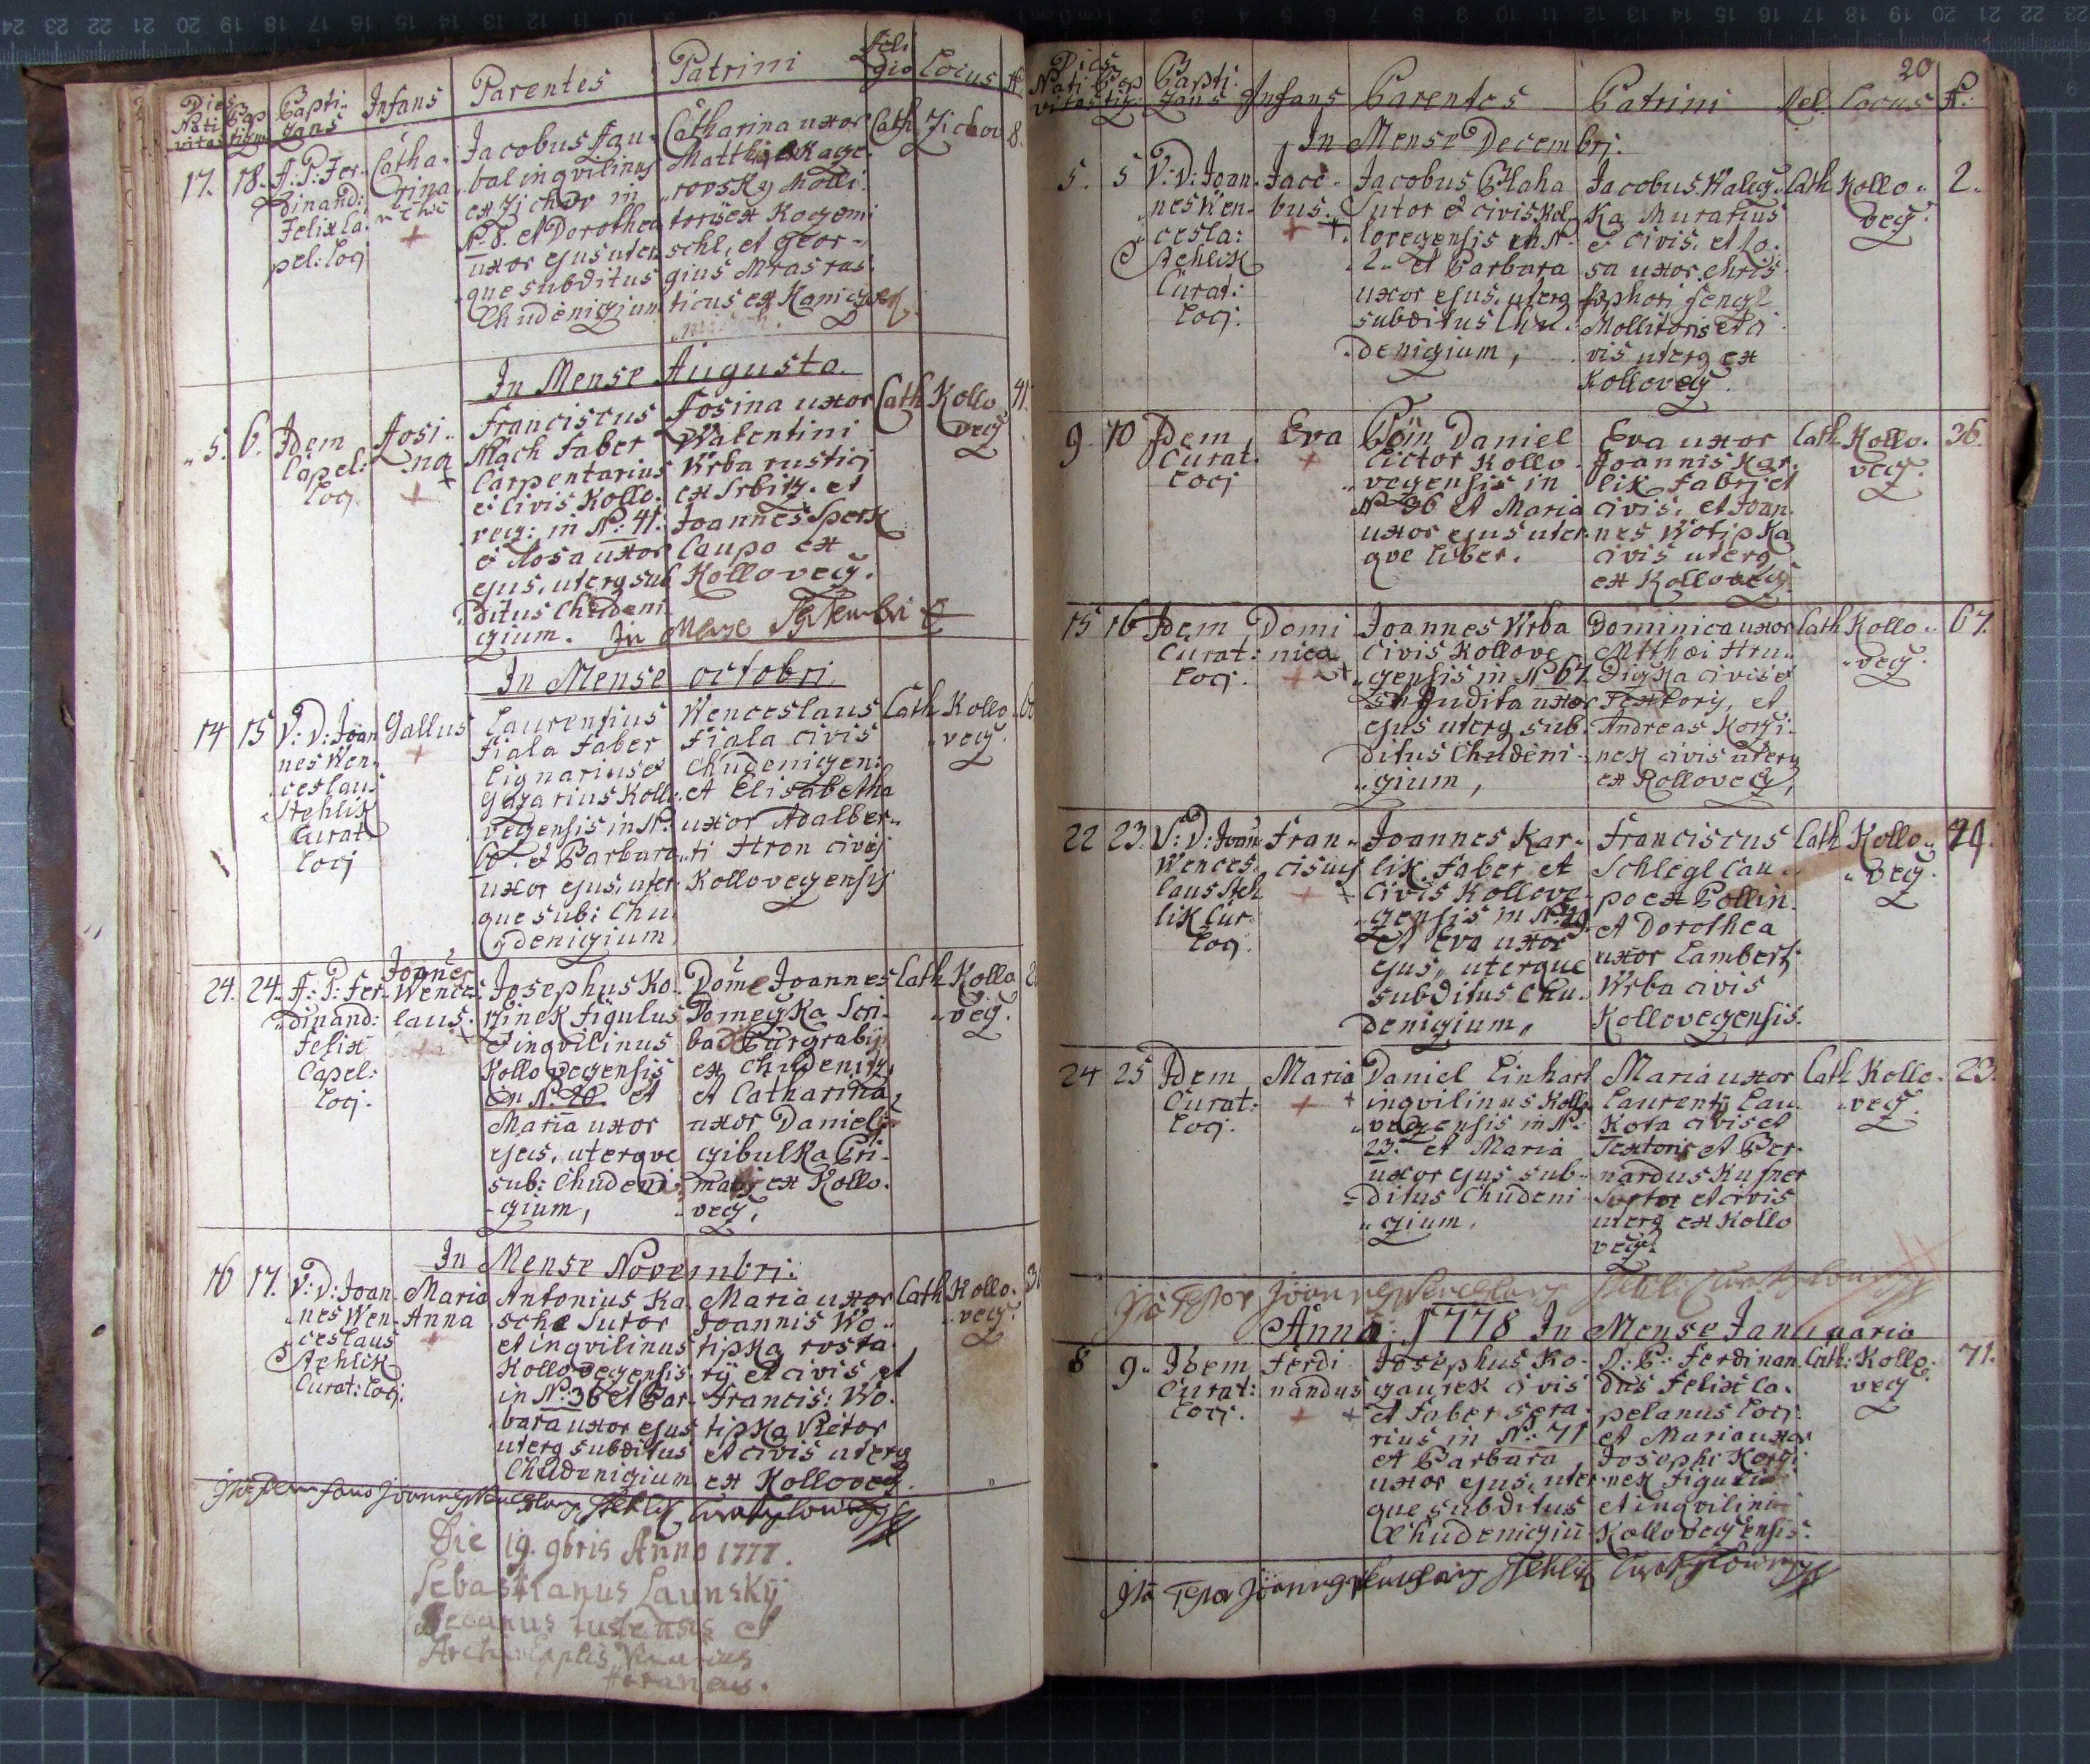 Dies
Nati Bap
vitas tizm
Bapti
zans
Infans
Parentes
Patrini
Reli
gio
Locus
N
17. 18.
A: P: Fer-
dinand:
Felix Ca-
pel: Loci
Catha-
rina
Jacobus
bal inqvilinus
ex Zichov in
N. 8. et Dorothea
uxor ejus uter
que subditus
Chudenizium
Catharina uxor
Matthiæ Kage-
rovsky Molli-
toris ex
schl, et Geor-
gius Mras rus-
ticus ex
Cath
Zichov
8.
In Mense Augusto.
5. 6.
Idem
Capel:
Loci
Rosi-
na
Franciscus
Mach Faber
Carpentarius
et Civis Kollo-
veg: in N: 41.
et Rosa uxor
ejus, uterq sub
ditus Chudeni
gium.
Rosina uxor
Walentini
Wrba rustici
ex Srbitz. et
Joannes Sperk
Caupo ex
Kollovecz.
Cath
Kollo
vecz
41.
In Mense Septembri
In Mense octobri
14 15
V: D: Joan
nes Wen-
ceslaus
Stehlik
Curat
Loci
Gallus
Laurentius
Fiala Faber
Lignarius et
Kollo-
vegensis in N:
60. et Barbara
uxor ejus, uter-
que sub: Chu
denigium
Wenceslaus
Fiala civis
Chudenigen:
et Elisabetha
uxor Adalber-
ti Hron civis
Kollovegensis
Cath
Kollo
vecz
24. 24.
A: P: Fer-
dinand:
Felix
Capel:
Loci.
Joanes
Wences-
laus.
Josephus Ko-
rzinek Figulus
et inqvilinus
Kollovegensis
in N. 20. et
Maria uxor
ejus, uterqve
sub: Chudeni
gium,
Joannes
Domeyka Scri-
ba Burgrabij
ex Chudenitz,
et Catharina
uxor Danielis
Cibulka
ex Kollo-
vecz,
Cath
Kollo
vecz.
In Mense Novembri.
16 17.
V: D: Joan-
nes Wen-
ceslaus
Stehlik
Curat: Loci.
Maria
Anna
Antonius Ka-
sche Sutor
et inqvilinus
Kollovegensis
in N: 36 et Bar-
bara uxor ejus
uterq subditus
Chudenigium
Maria uxor
Joannis Wo-
tipka
et civis, et
Francis: Wo-
tipka Vietor
et civis uterq
ex Kollovecz.
Cath
Kollo-
vecz.
Die 19. 9bris Anno 1777.
Sebastianus Launsky
Decanus
Vicarius
Foraneus.
20
Dies
Nati Bap
vitas tiz
Bapti-
zans
Infans
Parentes
Patrini
Rel.
Locus
N.
In Mense Decembri.
5. 5
V: D: Joan-
nes Wen-
cesla:
Stehlik
Curat:
Loci.
Jaco-
bus.
Jacobus Blaha
Sutor et civis Kol-
lovegensis ex N.
2. et Barbara
uxor ejus, uterq
subditus Chu-
denigium,
Jacobus Waleg-
ka Murarius
et civis, et Ro-
sa uxor Chris-
tophori Sengl
Mollitoris et ci
vis uterq ex
Kollovecz.
Cath
Kollo-
vecz.
2.
9 10
Idem
Curat.
Loci
Eva
Böm Daniel
Lictor Kollo-
vegensis in
N 36 et Maria
uxor ejus uter-
qve liber.
Eva uxor
Joannis Kar-
lik Fabri et
civis, et Joan-
nes Wotipka
civis uterq
ex Kollovecz.
Cath
Kollo-
vecz.
36.
15 16
Idem
Curat:
Loci.
Domi
nica
Joannes Wrba
Civis Kollove-
gensis in N 67.
et Judita uxor
ejus uterq sub-
ditus Chudeni-
gium,
Dominica uxor
Matthæi Hru-
et
Textoris, et
Andreas Korzi-
nek civis uterq
ex Kollovecz,
Cath
Kollo-
vecz.
67.
22 23.
V: D: Joan
Wences-
laus Steh
lik Cur.
Loci
Fran-
ciscus
Joannes Kar-
lik, Faber et
civis Kollove-
gensis in N.
et Eva uxor
ejus, uterque
subditus Chu-
denigium,
Franciscus
Schlegl Cau-
po ex Pollin.
et Dorothea
uxor Lamberti
Wrba civis
Kollovegensis.
Cath
Kollo-
vecz.
24 25
Idem
Curat:
Loci.
Maria
Daniel Linhart
inqvilinus Kollo-
vegensis in N.
23. et Maria
uxor ejus sub-
ditus Chudeni-
gium,
Maria uxor
Laurentij Lau-
Kota civis et
Textoris et Ber-
nardus Kusner
Sartor et civis
uterq ex Kollo
vecz.
Cath
Kollo-
vecz.
23.
Anno 1778 In Mense Januario
8 9.
Idem
Curat:
Loci.
Ferdi
nandus
Josephus Ko-
gaurek civis
et Faber sera-
rius in N: 71
et Barbara
uxor ejus, uter-
que subditus
Chudenigiu
A: P: Ferdinan
dus Felix Ca-
pelanus Loci.
et Maria uxor
Josephi Korzi
nek Figuli
et inqvilini
Kollovegensis.
Cath:
Kollo-
vecz
71.